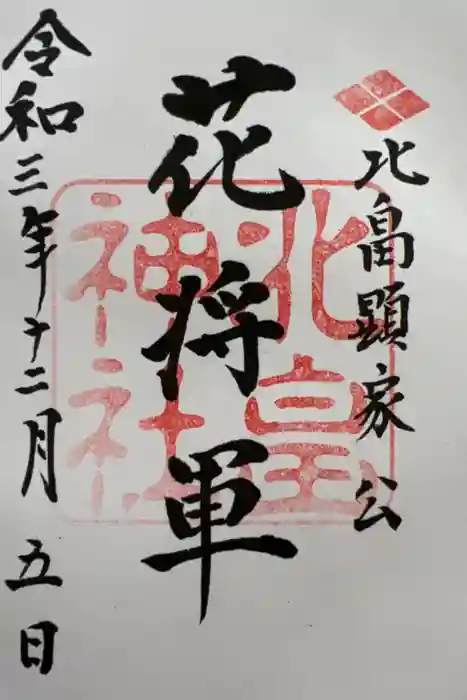 北畠顕家公
花将軍
令和三年十二月五日
北畠
神社